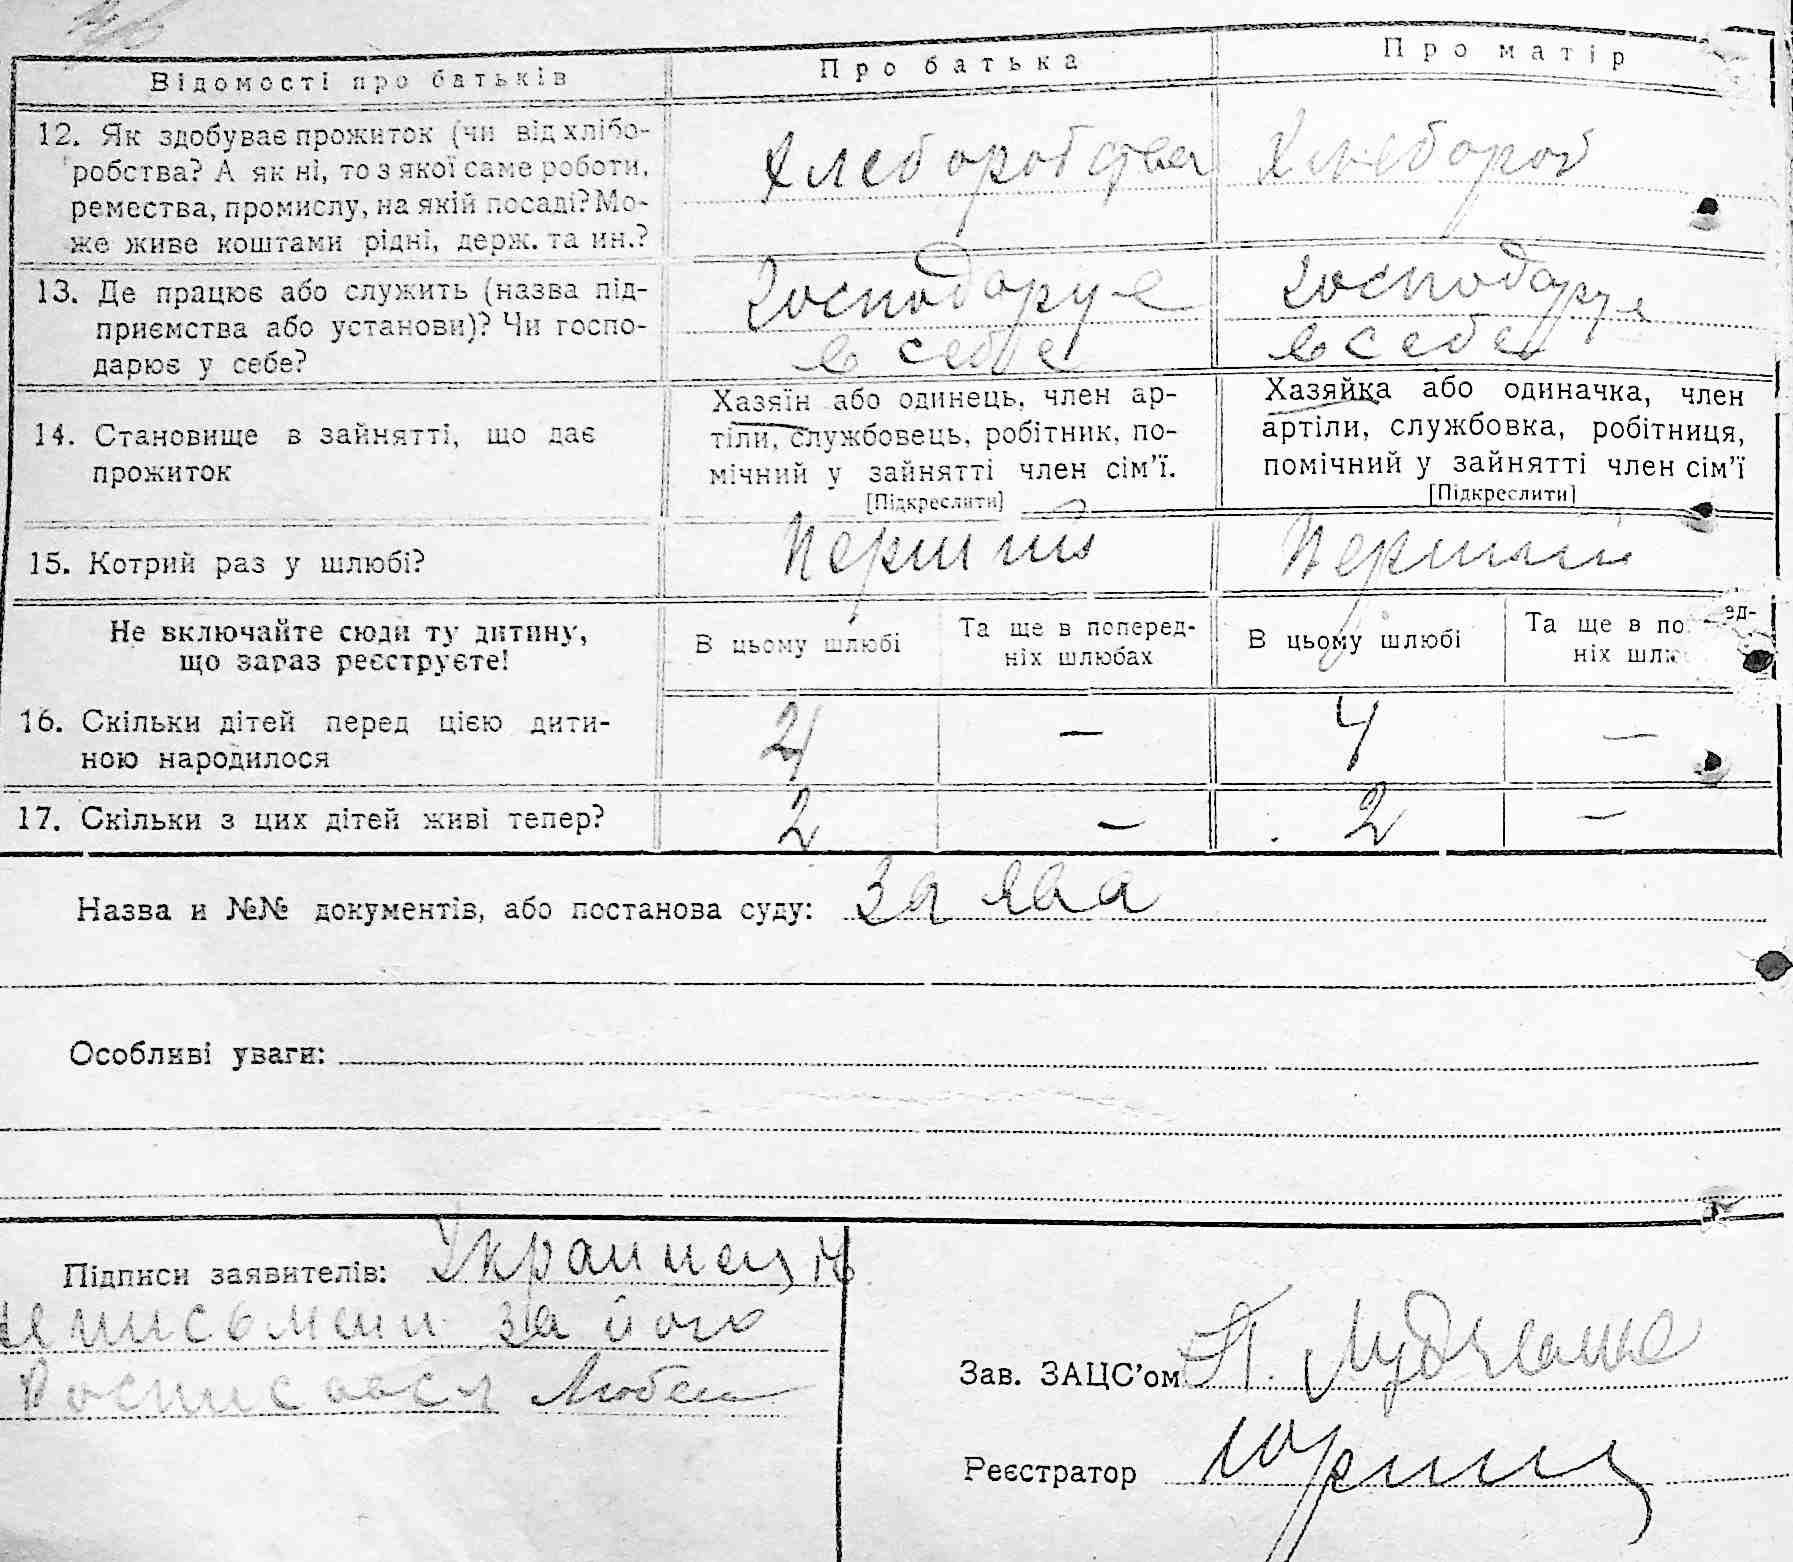 Відомості про батьків Про батька Про матір
12. Як здобуває прожиток (чи від хлібо-
робства? А як ні, то з якої саме роботи,
ремества, промислу, на якій посаді? Мо-
же живе коштами рідні, держ. та ин.?
Хлеборобства Хлебороб
13. Де працює або служить (назва під-
приємства або установи)? Чи госпо-
дарює у себе?
Господарує Господарує
в себе в себе
14. Становище в зайнятті, що дає
прожиток
Хазяїн або одинець, член ар-
тіли, службовець, робітник, по-
мічний у зайнятті член сім'ї.
[Підкреслити]
Хазяйка або одиначка, член
артіли, службовка, робітниця,
помічний у зайнятті член сім'ї
[Підкреслити]
15. Котрий раз у шлюбі? Перший Перший
Не включайте сюди ту дитину,
що зараз реєструєте!
В цьому шлюбі
Та ще в поперед-
ніх шлюбах
В цьому шлюбі
Та ще в по ед-
ніх шлю
16. Скільки дітей перед цією дити-
ною народилося
4 – 4 –
17. Скільки з цих дітей живі тепер? 2 – 2 –
Назва и №№ документів, або постанова суду: Заява
Особливі уваги:
Підписи заявителів: Украинець
неписьмени за його
Росписався
Зав. ЗАЦС'ом П.
Реєстратор